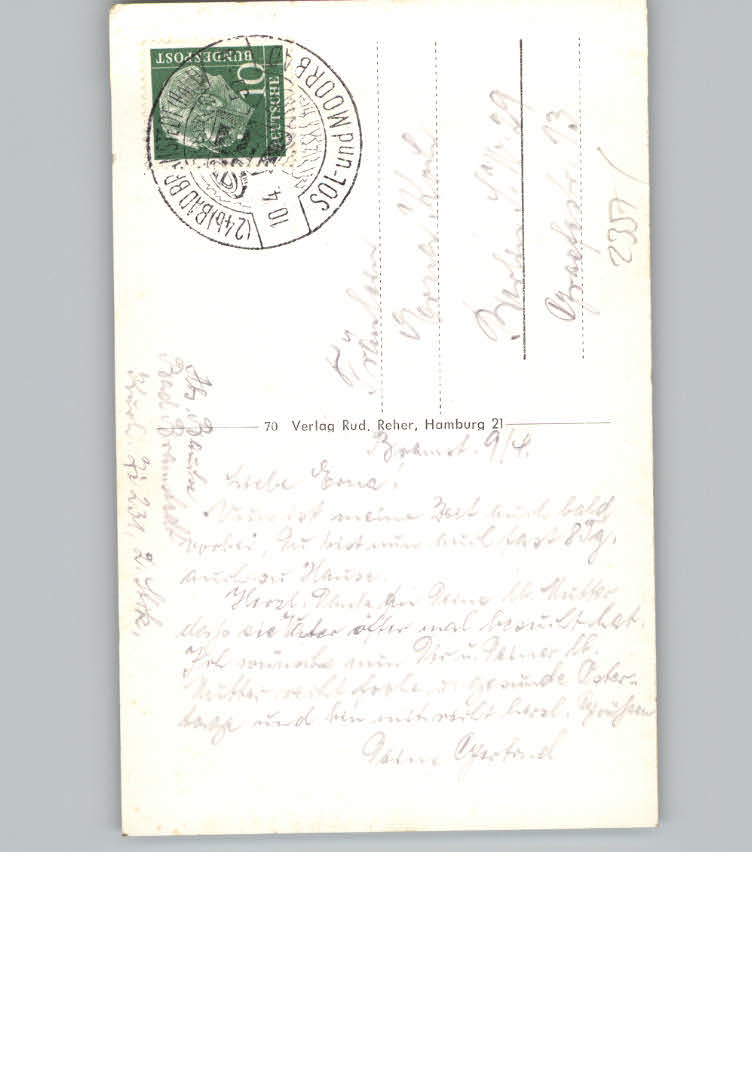 DEUTSCHE
BUNDESPOST
10
(24b) BAD BRAMSTEDT
SOL- und MOORBAD
10.4
Fräulein
Berlin SW 29
Graefestr. 13
2351/
70 Verlag Rud. Reher, Hamburg 21
Bad Bramstedt
Kurh. Zi 231, 2. Stck.
Bramst. 9/4.
Liebe Erna!
Nun ist meine Zeit auch bald
vorbei, Du bist nun auch fast 8 Tg.
auch zu Hause.
Herzl. Dank an Deine lb. Mutter
dass sie Vater öfter mal besucht hat.
Ich wünsche nun Dir u. Deiner lb.
Mutter recht frohe u. gesunde Oster-
tage und bin mit recht herzl. Grüßen
Deine Gertrud